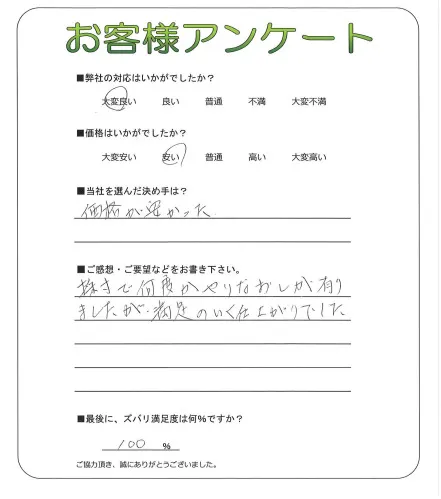 お客様アンケート
■弊社の対応はいかがでしたか?
大変良い 良い 普通 不満 大変不満
■価格はいかがでしたか?
大変安い 安い 普通 高い 大変高い
■当社を選んだ決め手は?
価格が安かった
■ご感想・ご要望などをお書き下さい。
で何度かやりなおしが有り
ましたが、満足のいく仕上がりでした
■最後に、ズバリ満足度は何%ですか?
100 %
ご協力頂き、誠にありがとうございました。